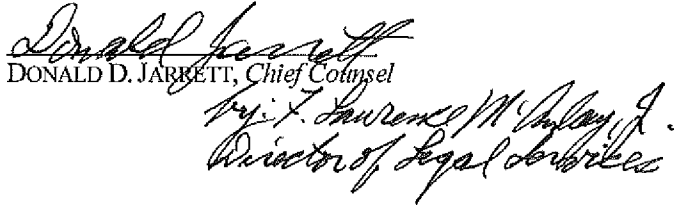 Donald Jarrett
DONALD D. JARRETT, Chief Counsel
by: F. Laurence
Director of Legal Services